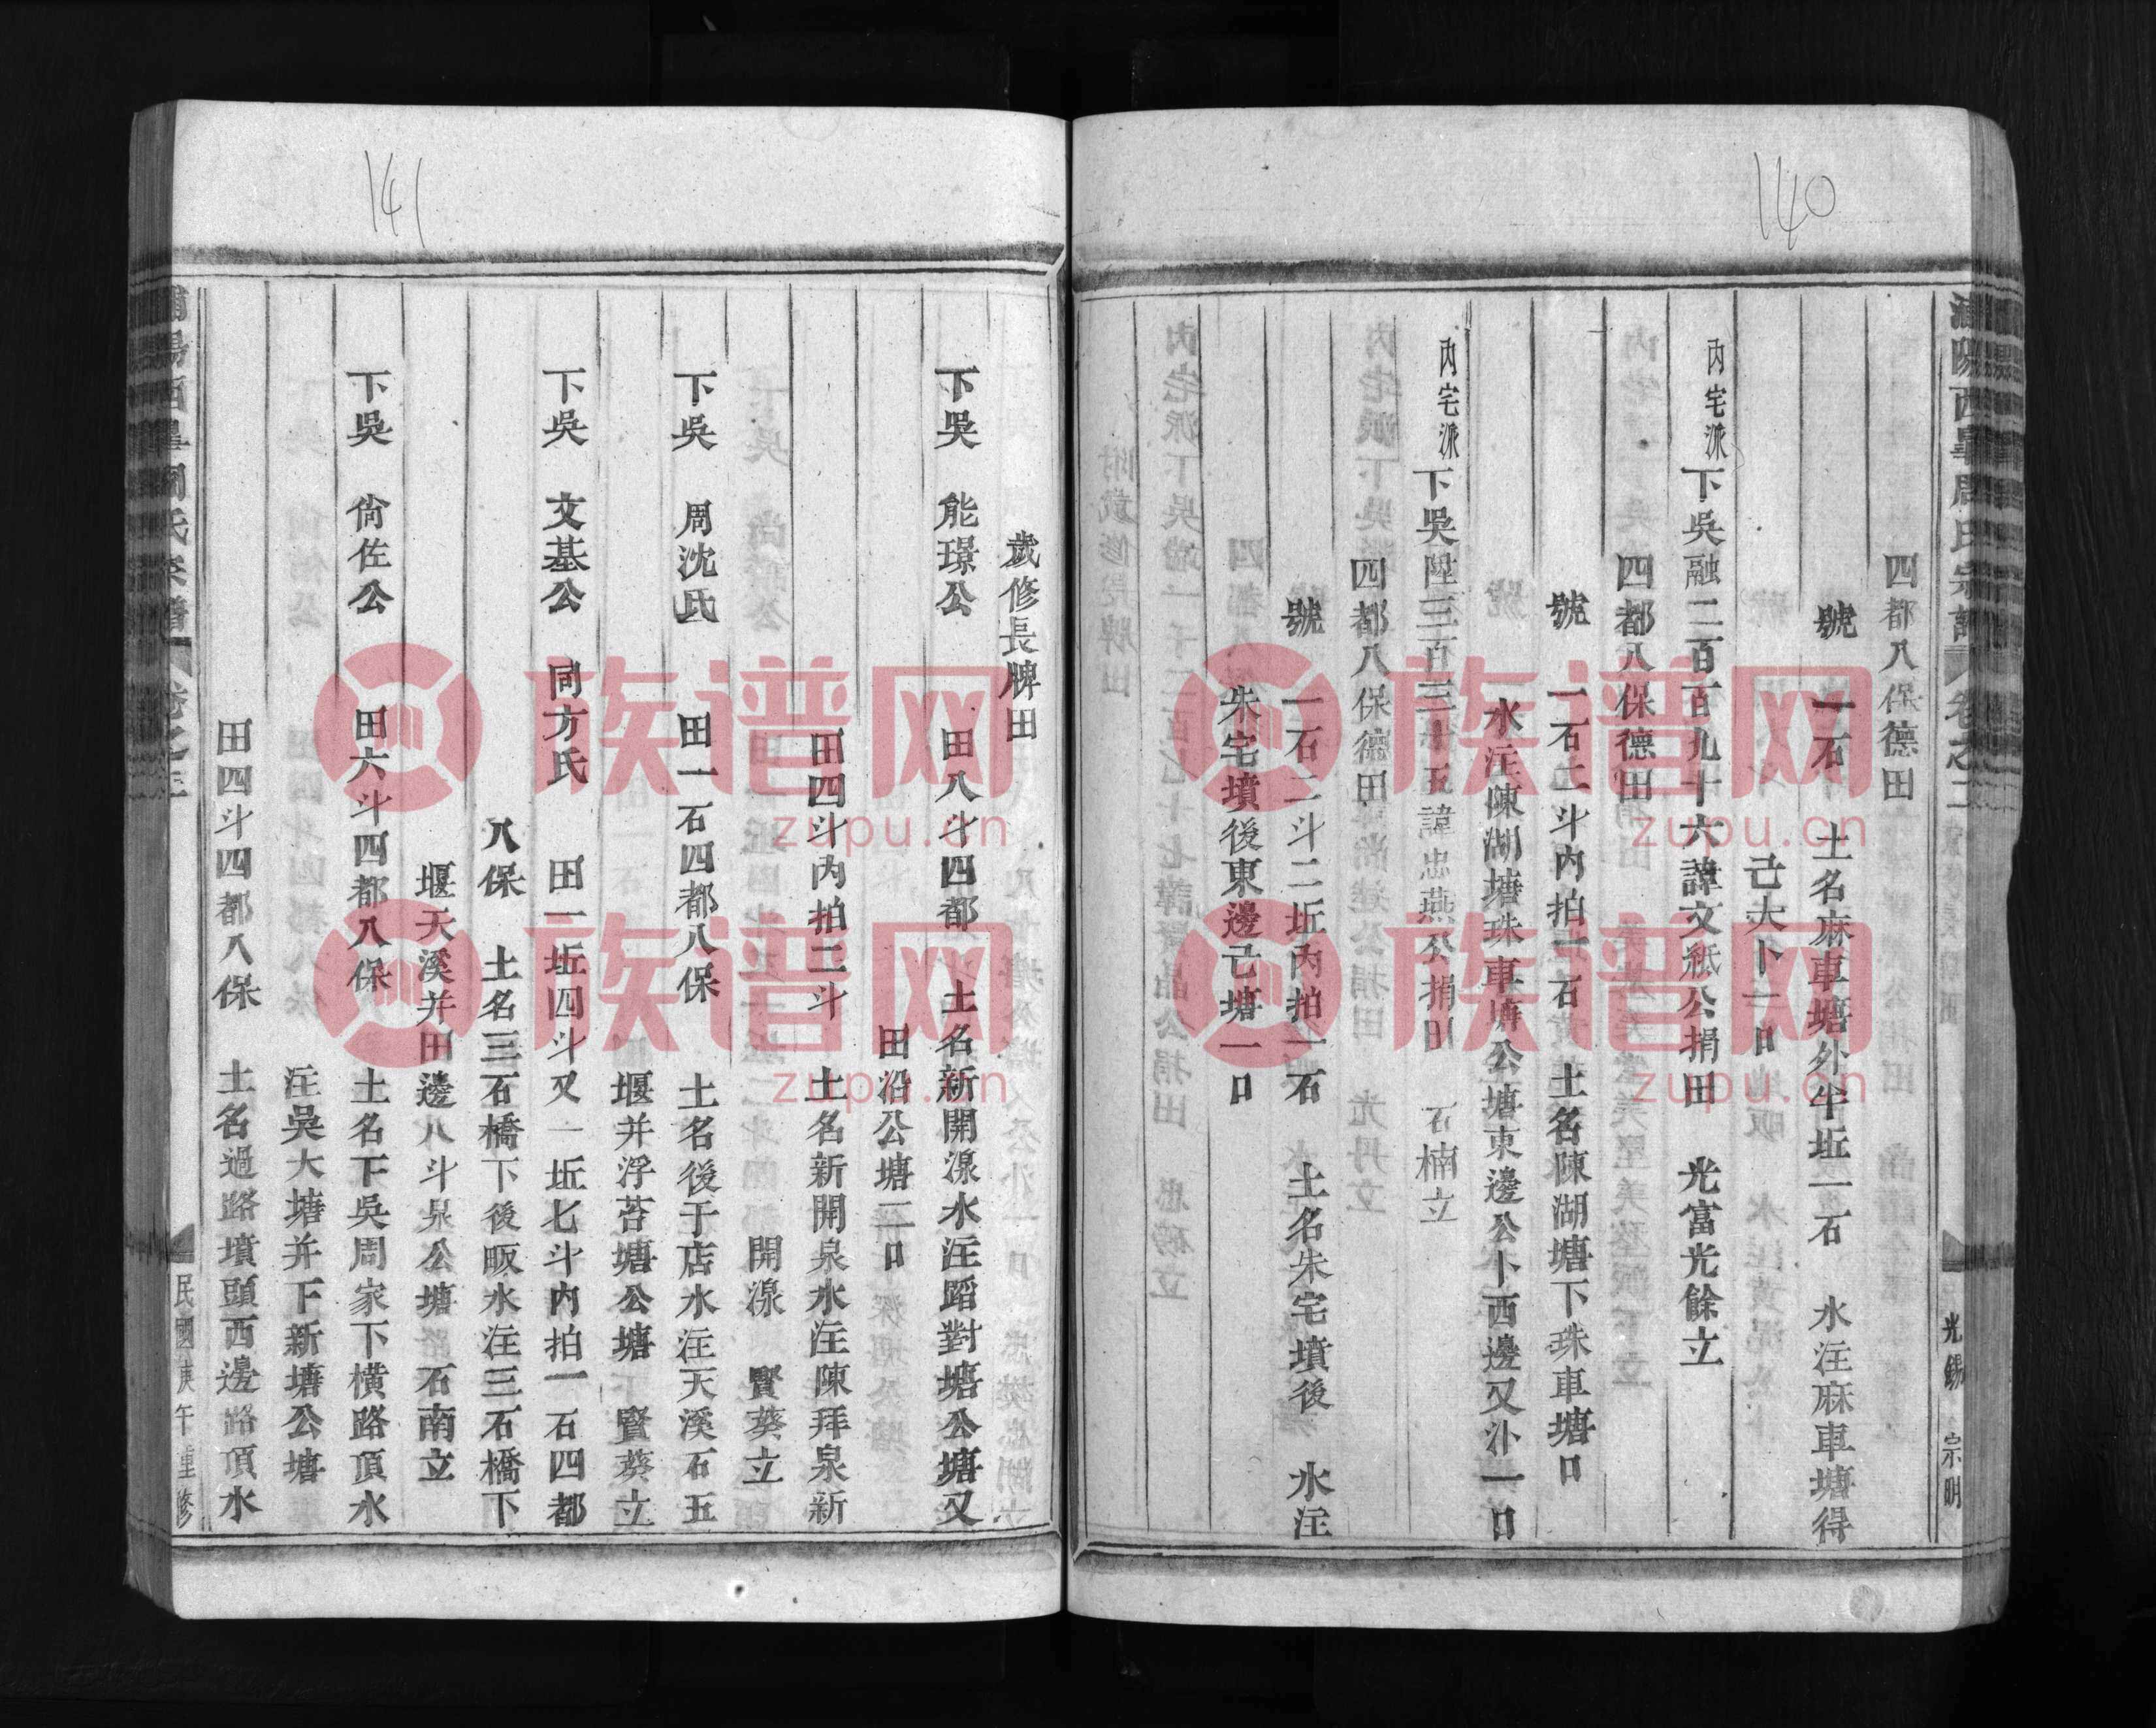 140
四都八保德田
號 一石 土名麻車塘外半坵一石 水注麻車塘得
己大卜一口
內宅派下吳融二百九十六諱文紙公捐田 光富光餘立
四都八保德田
號 一石二斗內拍一石 土名陳湖塘下珠車塘口
水注陳湖塘珠車塘公塘東邊公卜西邊又汴一口
內宅派下吳陞三百三十五諱忠燕公捐田 石楠立
四都八保德田
號 一石二斗二坵內拍一石 土名朱宅墳後 水注
朱宅墳後東邊己塘一口
光錫 宗明
141
歲修長牌田
下吳 能璟公 田八斗四都 土名新開湶水注蹈對塘公塘又
田沿公塘二口
田四斗內拍二斗 土名新開泉水注陳拜泉新
開湶 賢葵立
下吳 周沈氏 田一石四都八保 土名後于店水注天溪石五
堰并浮苔塘公塘 賢葵立
下吳 文基公 同方氏 田一坵四斗又一坵七斗內拍一石四都
八保 土名三石橋下後畈水注三石橋下
堰天溪并田邊八斗泉公塘 石南立
下吳 尙佐公 田六斗四都八保 土名下吳周家下橫路頂水
注吳大塘并下新塘公塘
田四斗四都八保 土名過路墳頭西邊路頂水
民國庚午重修
族谱网
zupu.cn
族谱网
zupu.cn
族谱网
zupu.cn
族谱网
zupu.cn